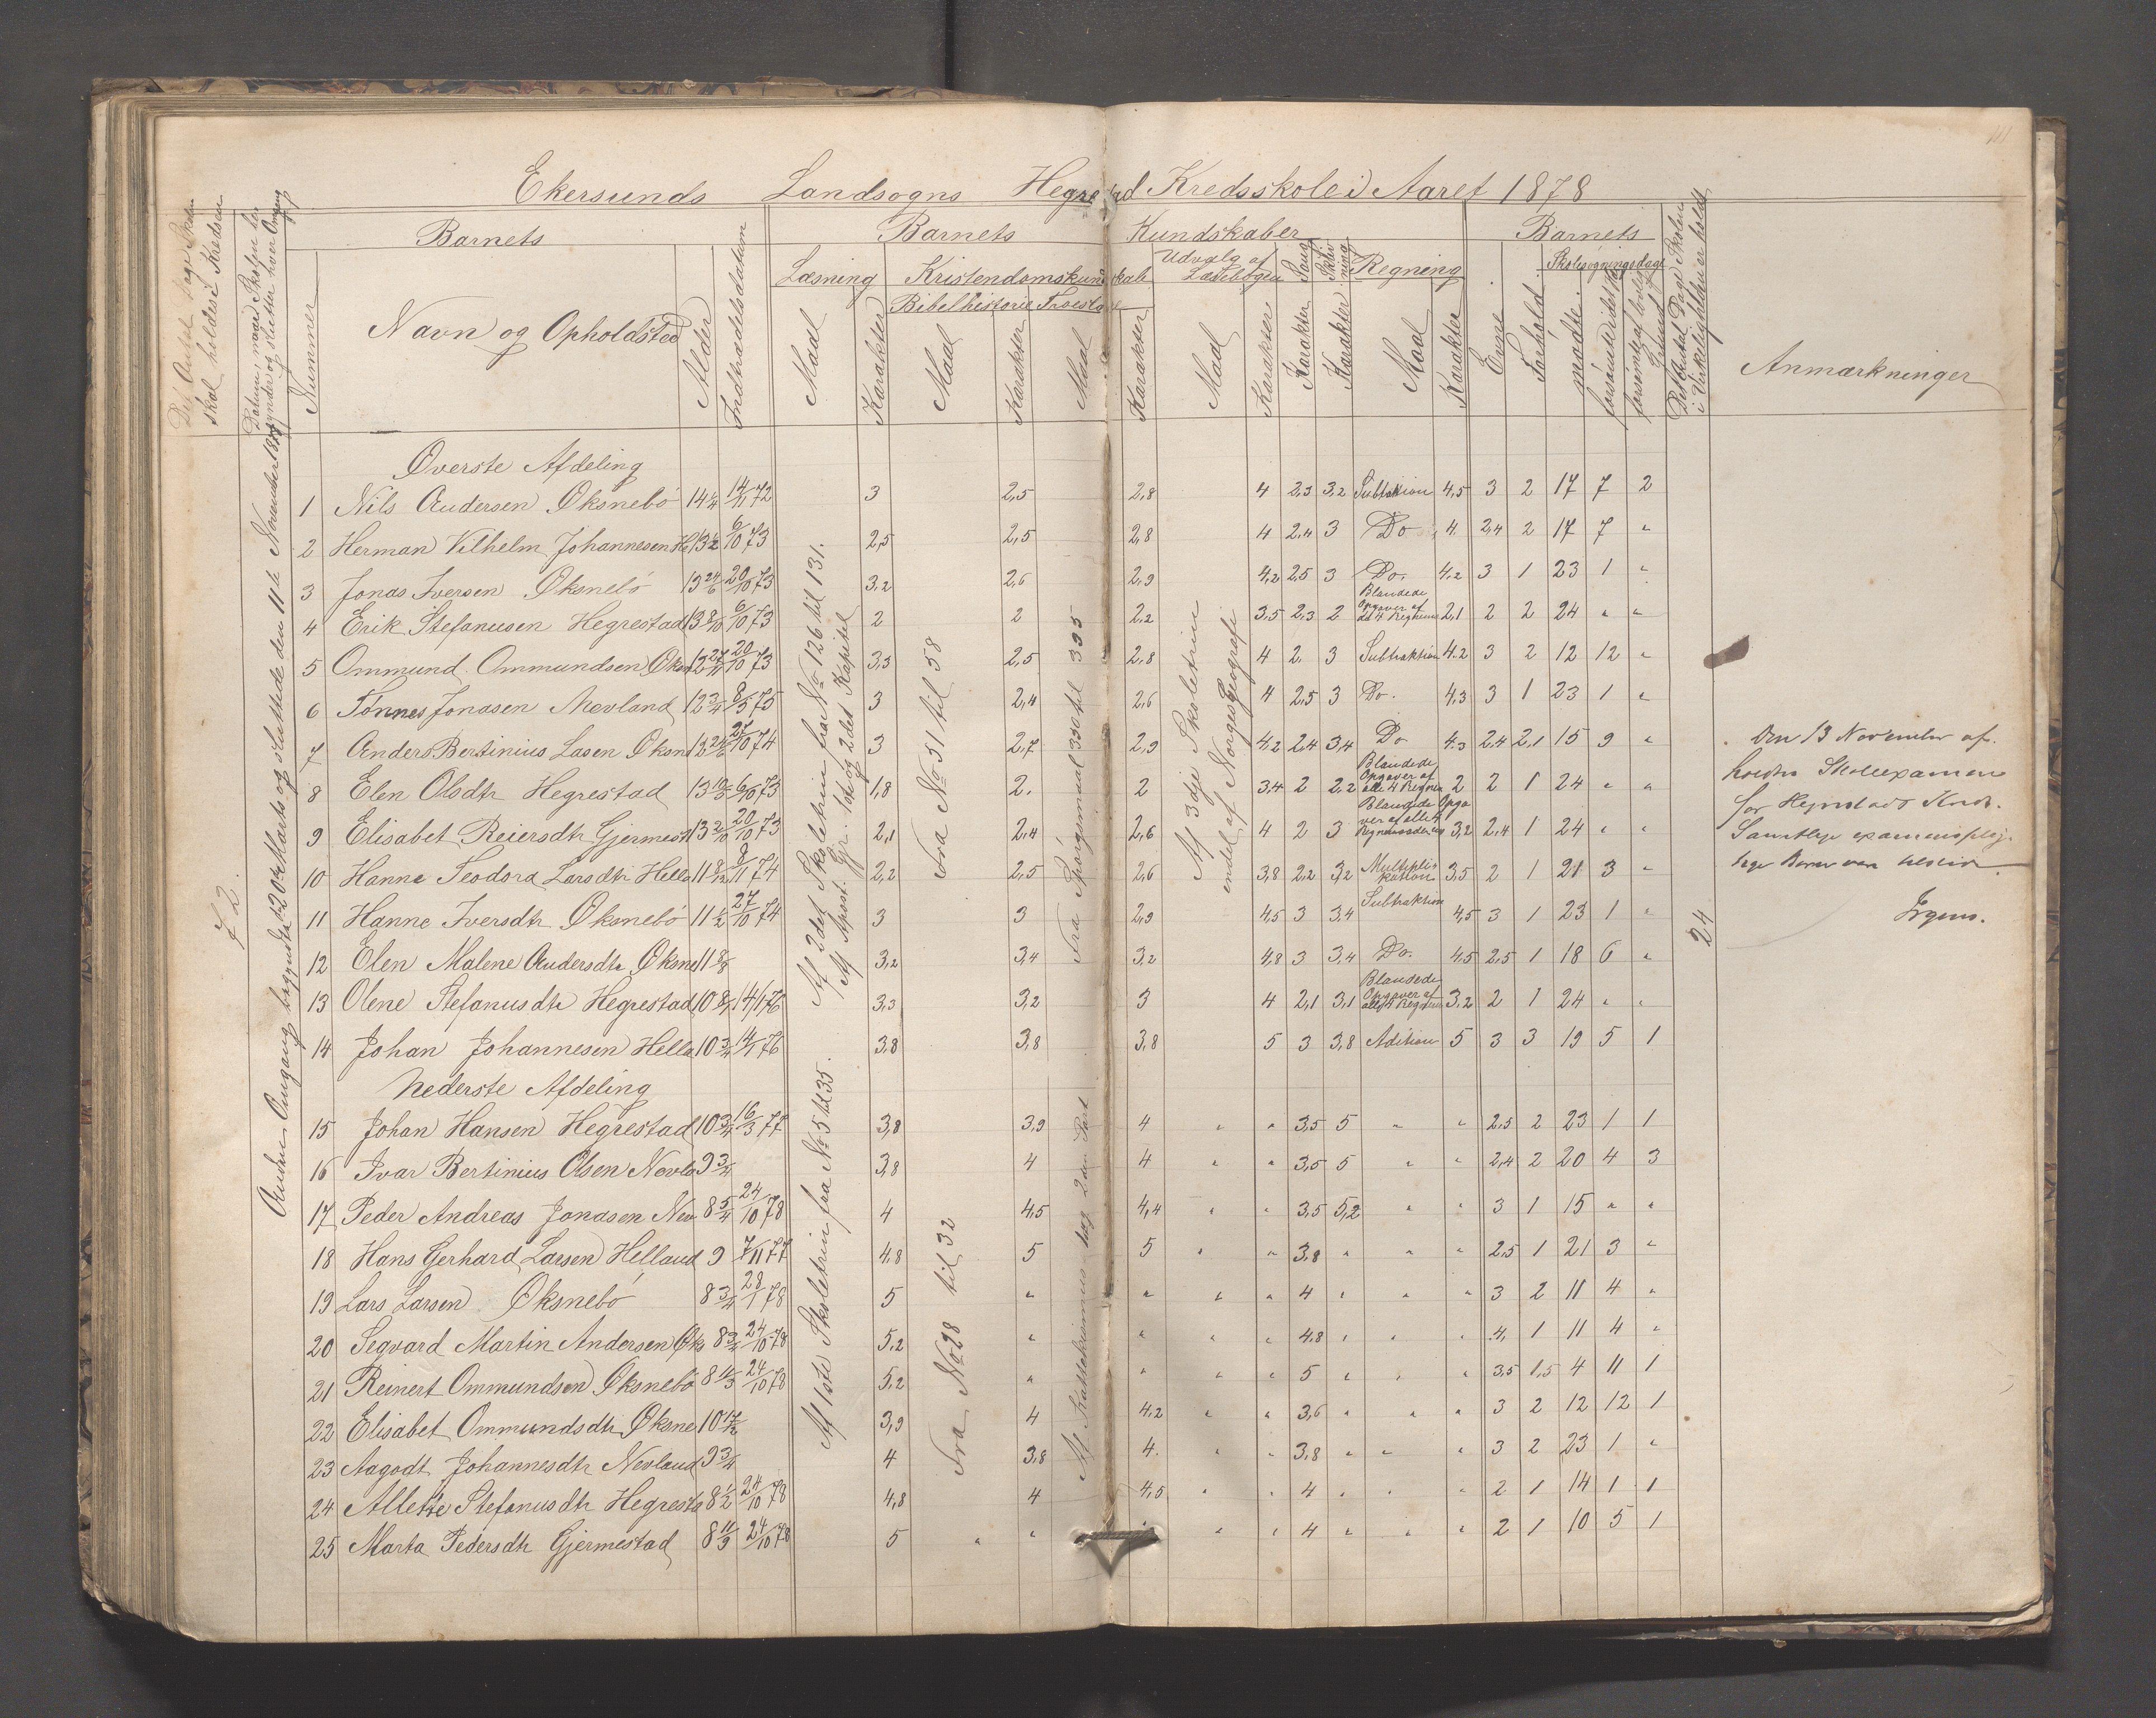 Ekersunds Landsogns Hegrestad Kredsskole i Aaret 1878
Det Antal Dage Skolen skal holdes i Kredsen
Datum, naar Skolen begynder og slutter hver Omgang
Nummer
Barnets
Navn og Opholdsted
Alder
Indtrædelsesdatum
Barnets Kundskaber
Læsning
Maal
Karakter
Kristendomskundskab
Bibelhistorie
Maal
Karakter
Troeslære
Maal
Karakter
Udvalg af Læsebogen
Maal
Karakter
Sang
Karakter
Skrivning
Karakter
Regning
Maal
Karakter
Barnets
Evne
Forhold
Skolesøgningsdage
mødte
forsømte i det hele
forsømte af lovlig Grund
Det Antal Dage Skolen i Virkeligheden er holdt
Anmærkninger
72
Anden Omgang begyndte 20de Marts og sluttede den 11te November 1878
Øverste Afdeling
1 Nils Andersen Øksnebö 14 1/4 14/11 72 3 2,5 2,8 4 2,3 3,2 Subtraktion 4,5 3 2 17 7 2
2 Herman Vilhelm Johannesen He 13 1/2 6/10 73 2,5 2,5 2,8 4 2,4 3 Do 4 2,4 2 17 7 "
3 Jonas Iversen Øksnebö 13 20/10 73 3,2 2,6 2,9 4,2 2,5 3 Do. 4,2 3 1 23 1 "
4 Erik Stefanusen Hegrestad 13 8/10 6/10 73 2 2 2,2 3,5 2,3 2 Blandede Opgaver af de 4 Regninger 2,1 2 2 24 " "
5 Ommund Ommundsen Øksn 20/10 73 3,3 2,5 2,8 4 2 3 Subtraktion 4,2 3 2 12 12 "
6 Tønnes Jonasen Nevland 12 3/4 8/5 75 3 2,4 2,6 4 2,5 3 Do. 4,3 3 1 23 1 "
7 Anders Bertinius Lasen Øksn 27/10 74 3 2,7 2,9 4,2 2,4 3,4 Do 4,3 2,4 2,1 15 9 "
8 Elen Olsdtr Hegrestad 13 6/10 73 1,8 2. 2 3,4 2 2,2 Blandede Opgaver af alle 4 Regnin 2 2 1 24 " "
9 Elisabet Reiersdtr Gjermest 13 2/10 20/10 73 2,1 2,4 2,6 4 2 3 Blandede Opgaver af alle 4 3,2 2,4 1 24 " "
10 Hanne Teodora Larsdtr Hella 11 8/12 9/11 74 2,2 2,5 2,6 3,8 2,2 3,2 Multiplikation 3,5 2 1 21 3 "
11 Hanne Iversdtr Øksnebö 11 1/2 27/10 74 3 3 2,9 4,5 3 3,4 Subtraktion 4,5 3 1 23 1 "
12 Elen Malene Andersdtr Øksne 11 3,2 3,4 3,2 4,8 3 3,4 Do. 4,5 2,5 1 18 6 "
13 Olene Stefanusdtr Hegrestad 10 14/1 76 3,3 3,2 3 4 2,1 3,1 Blandede Opgaver af alle 4 Regnin 3,2 2 1 24 " "
14 Johan Johannesen Hella 10 3/4 14/1 76 3,8 3,8 3,8 5 3 3,8 Adition 5 3 3 19 5 1
Nederste Afdeling
15 Johan Hansen Hegrestad 10 3/4 16/3 77 3,8 3,9 4 " " 3,5 5 " " 2,5 2 23 1 1
16 Ivar Bertinius Olsen Nevla 9 3/4 3,8 4 4 " " 3,5 5 " " 2,4 2 20 4 3
17 Peder Andreas Jonasen Nev 8 5/4 24/10 78 4 4,5 4,4 " " 3,5 5,2 " " 3 1 15 " "
18 Hans Gerhard Larsen Helland 9 7/11 77 4,8 5 5 " " 3,8 " " " 2,5 1 21 3 "
19 Lars Larsen Øksnebö 8 3/4 28/1 78 5 " " " " 4 " " " 3 2 11 4 "
20 Segvard Martin Andersen Øks 8 3/4 24/10 78 5,2 " " " " 4,8 " " " 4. 1 11 4 "
21 Reinert Ommundsen Øksnebö 8 24/10 78 5,2 " " " " 5 " " " 3,5 1,5 4 11 1
22 Elisabet Ommundsdtr Øksne 10 3,9 4 4,2 " " 3,6 " " " 3 2 12 12 1
23 Aagodt Johannesdtr Nevland 9 3/4 4 3,8 4. " " 3,8 " " " 3 2 23 1 "
24 Allette Stefanusdtr Hegresta 8 1/2 24/10 78 4,8 4 4,5 " " 4 " " " 2 1 14 1 1
25 Marta Pedersdtr Gjermestad 8 24/10 78 5 " " " " " 4 " " " 2 1 10 5 1
Af 2det Skoletrin fra No 126 til 131.
Af Apost. Gr. 1ste og 2det Kapitel
Af 1ste Skoletrin fra No 5 til 35.
Fra No 51 til 58
Fra No 28 til 32
Fra Spörgsmaal 330 til 395
Af Katekismus 2den Part
Af 3dje Skoletrin
endel af Norges Geografi
24
Den 13 November af-
holdtes Skoleexamen
for Hegrestads Kreds.
Samtlige examenspligtige Børn var tilstede.